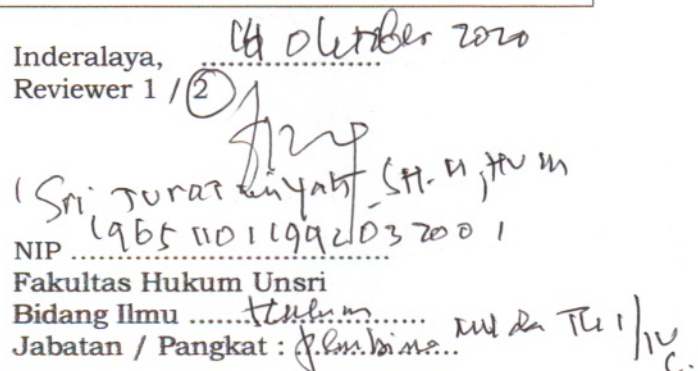 Inderalaya, 14 Oktober 2020
Reviewer 1 / 2
(Sri Turatmiyah, SH. M,Hum
NIP 196511011992032001
Fakultas Hukum Unsri
Bidang Ilmu ...... Hukum ......
Jabatan / Pangkat : Pembina Muda /IV c.